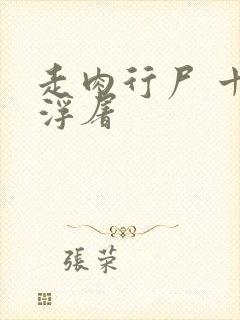 走肉行尸 十
浮屠
張荣